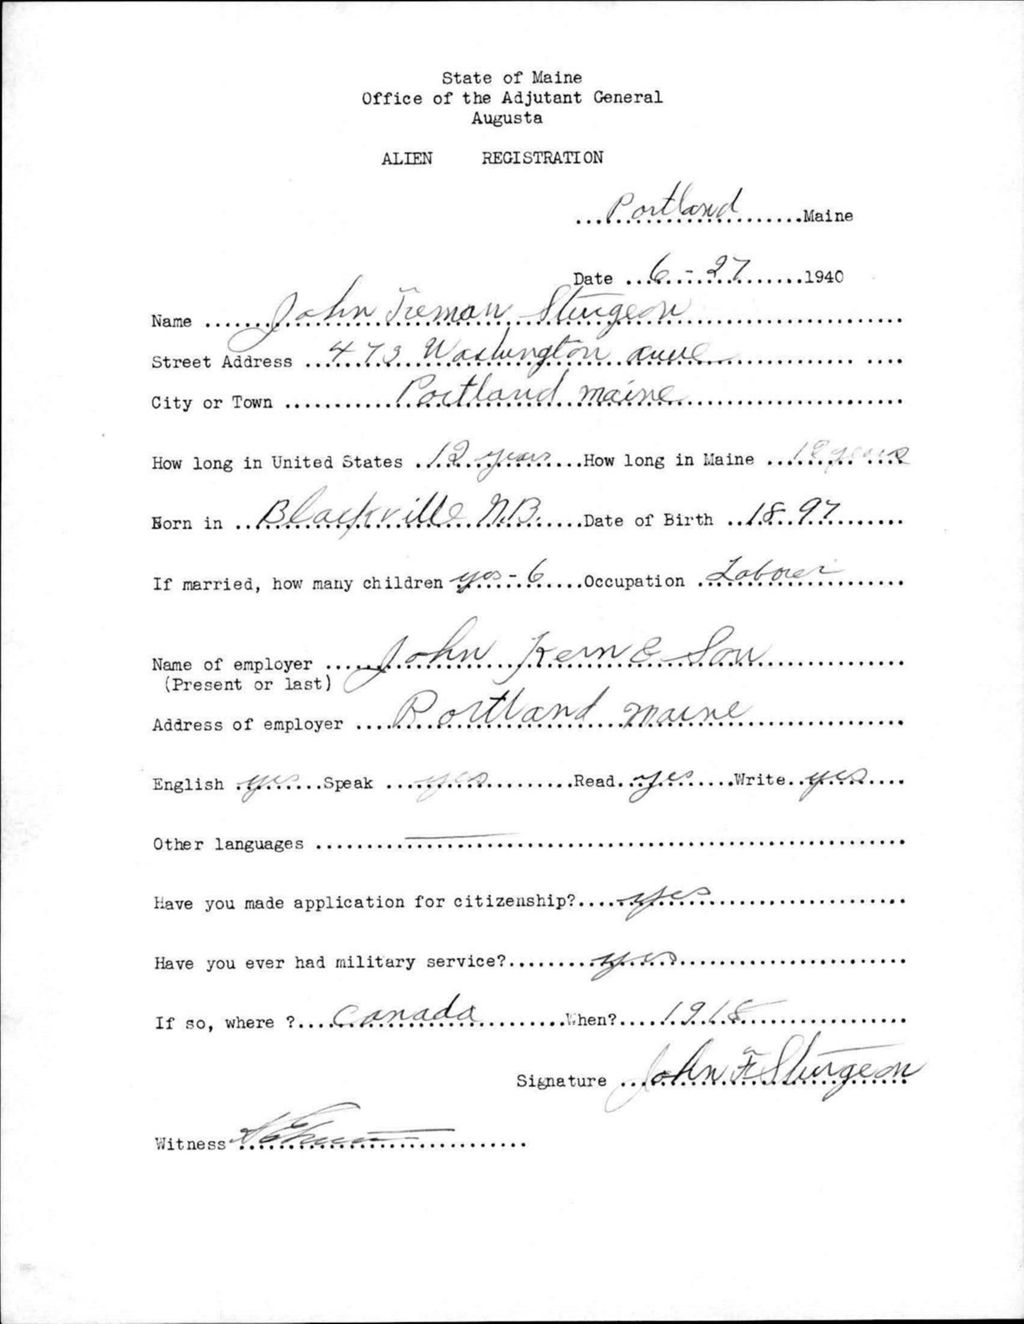 State of Maine
Office of the Adjutant General
Augusta
ALIEN REGISTRATION
Portland Maine
Date 6 - 27 1940
Name John Freman Sturgeon
Street Address 473 Washington Ave
City or Town Portland Maine
How long in United States 12 years How long in Maine 12 years
Born in Blackville N.B. Date of Birth 1897
If married, how many children yes - 6 Occupation Laborer
Name of employer John Kern & Son
(Present or last)
Address of employer Portland Maine
English yes Speak yes Read yes Write yes
Other languages
Have you made application for citizenship? yes
Have you ever had military service? yes
If so, where ? Canada When? 1918
Signature John F Sturgeon
Witness